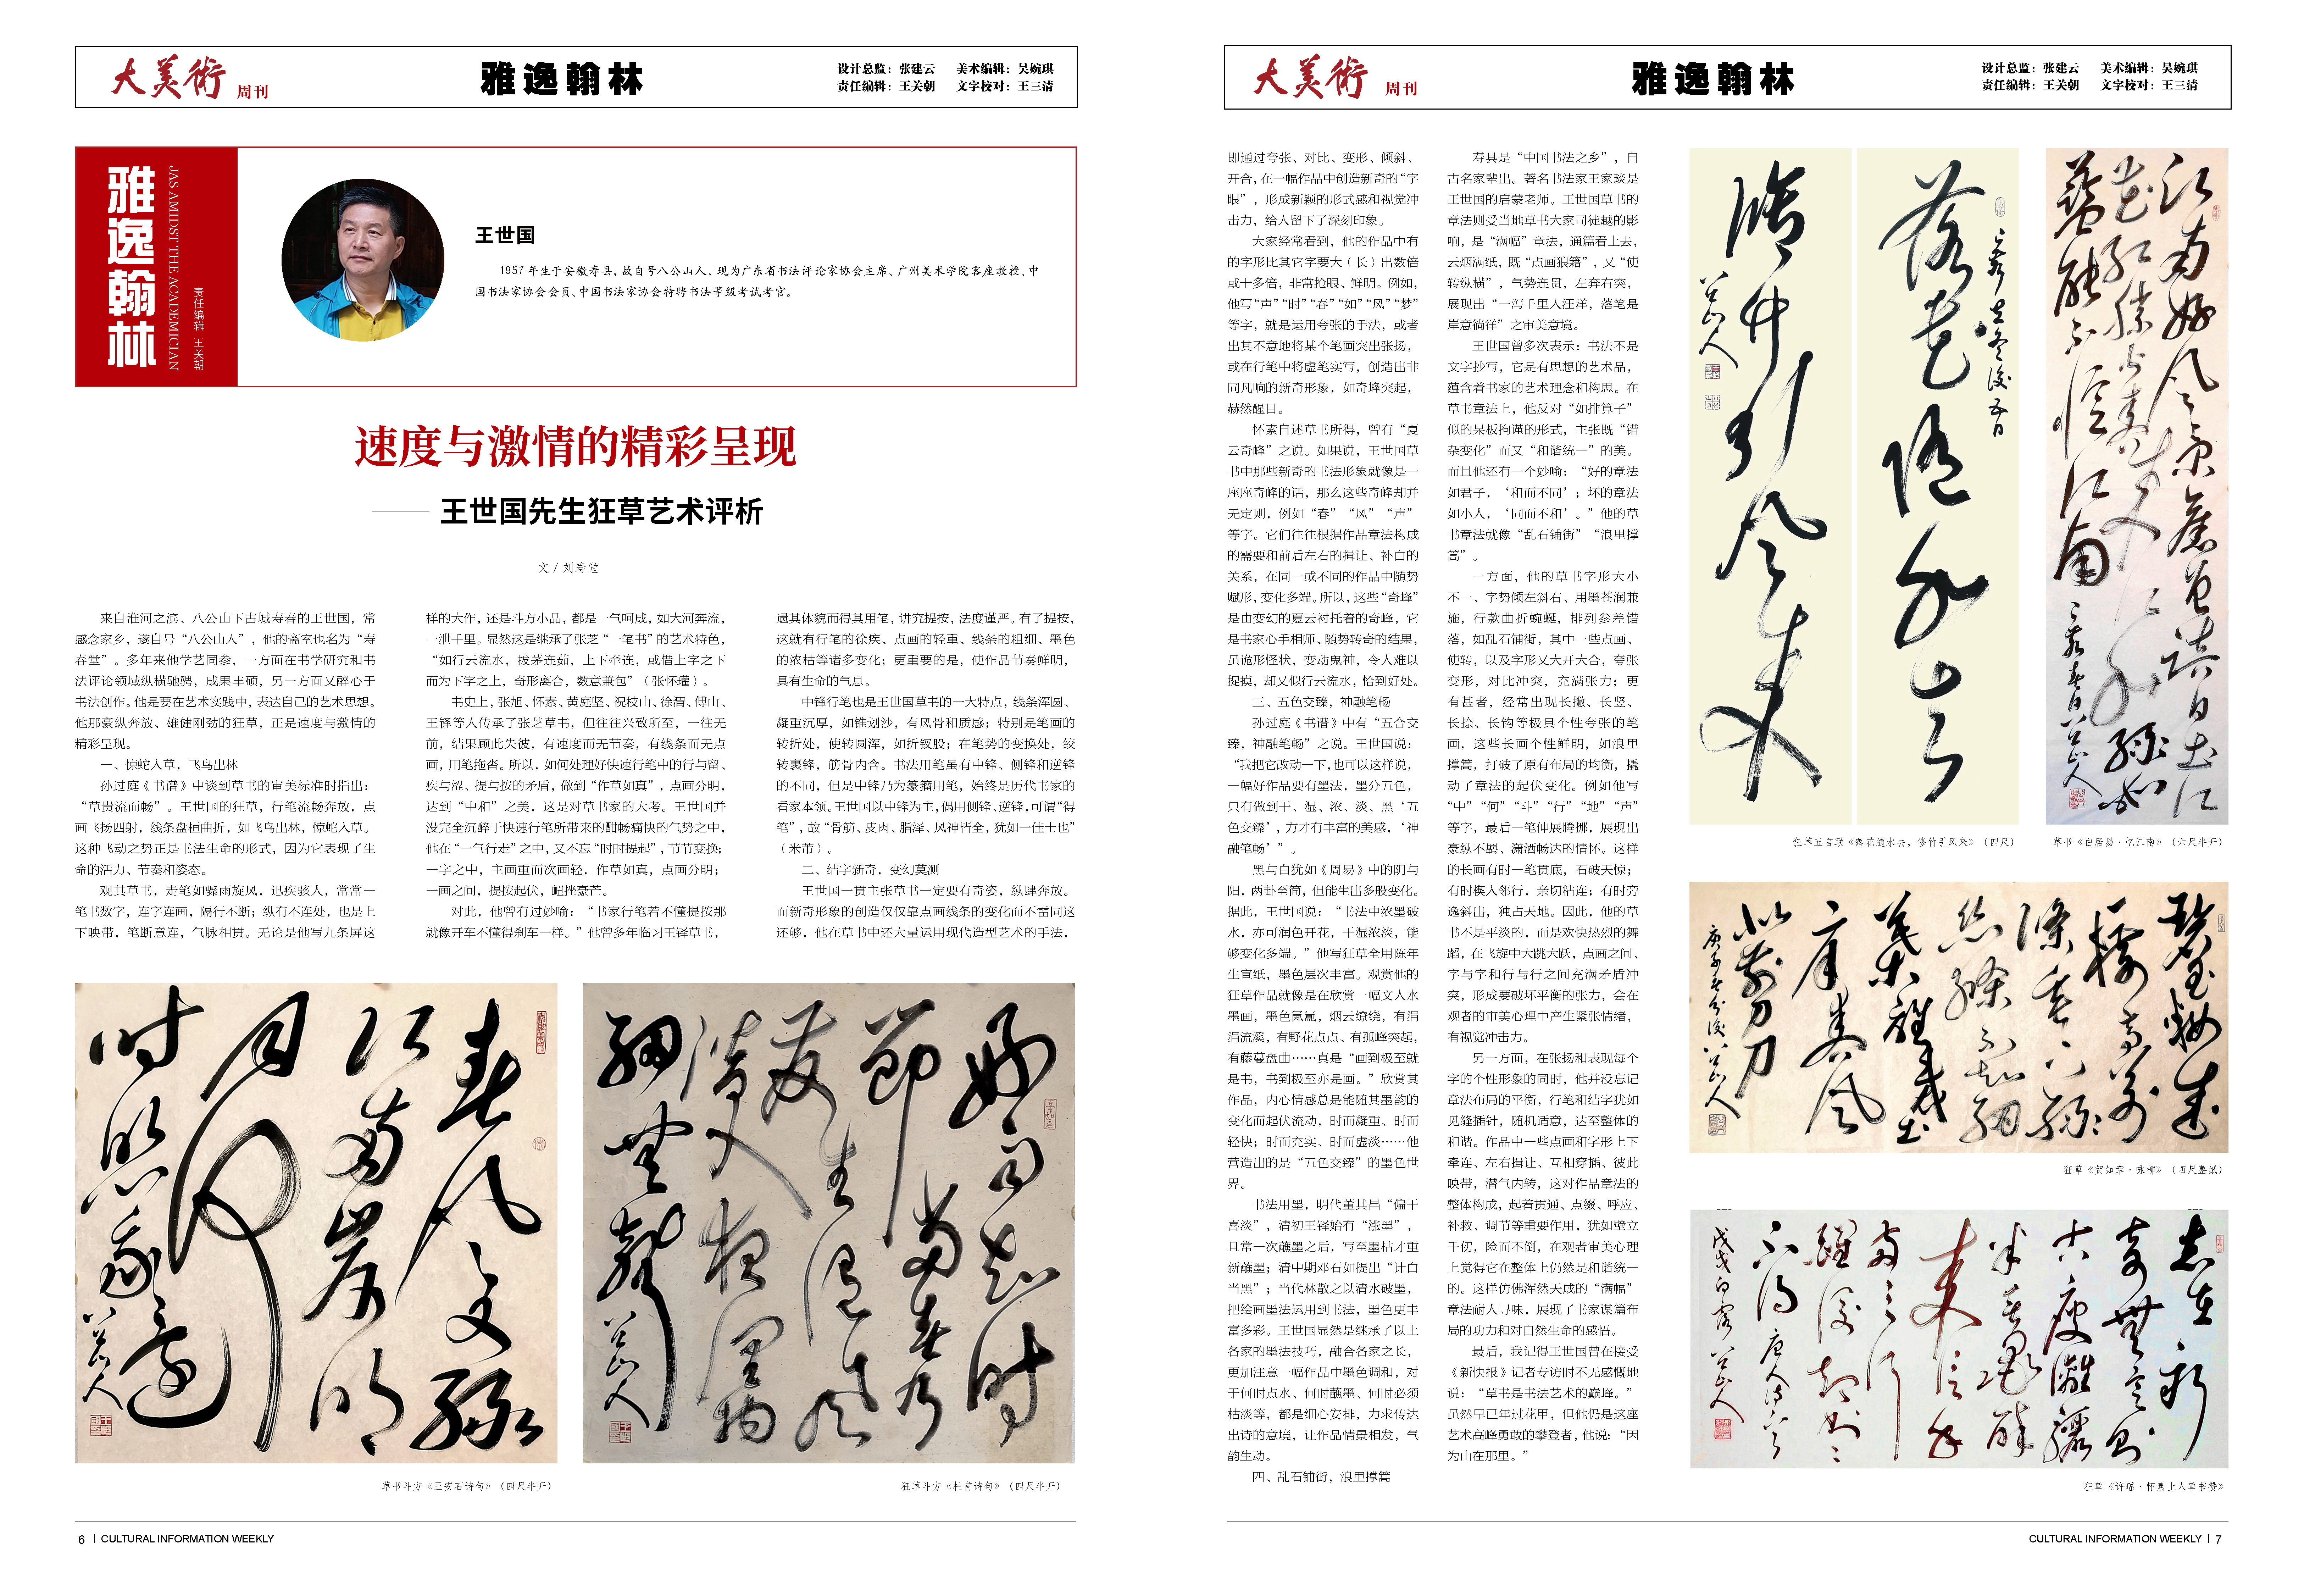 大美術 周刊
雅逸翰林
设计总监：张建云 美术编辑：吴婉琪
责任编辑：王关朝 文字校对：王三清
雅逸翰林
JAS AMIDST THE ACADEMICIAN
责任编辑 王关朝
王世国
1957年生于安徽寿县、故自号八公山人，现为广东省书法评论家协会主席、广州美术学院客座教授、中
国书法家协会会员、中国书法家协会特聘书法等级考试考官。
速度与激情的精彩呈现
——王世国先生狂草艺术评析
文 / 刘寿堂
来自淮河之滨、八公山下古城寿春的王世国，常
感念家乡，遂自号“八公山人”，他的斋室也名为“寿
春堂”。多年来他学艺同参，一方面在书学研究和书
法评论领域纵横驰骋，成果丰硕，另一方面又醉心于
书法创作。他是要在艺术实践中，表达自己的艺术思想。
他那豪纵奔放、雄健刚劲的狂草，正是速度与激情的
精彩呈现。
一、惊蛇入草，飞鸟出林
孙过庭《书谱》中谈到草书的审美标准时指出：
“草贵流而畅”。王世国的狂草，行笔流畅奔放，点
画飞扬四射，线条盘桓曲折，如飞鸟出林，惊蛇入草。
这种飞动之势正是书法生命的形式，因为它表现了生
命的活力、节奏和姿态。
观其草书，走笔如骤雨旋风，迅疾骇人，常常一
笔书数字，连字连画，隔行不断；纵有不连处，也是上
下映带，笔断意连，气脉相贯。无论是他写九条屏这
样的大作，还是斗方小品，都是一气呵成，如大河奔流，
一泄千里。显然这是继承了张芝“一笔书”的艺术特色，
“如行云流水，拔茅连茹，上下牵连，或借上字之下
而为下字之上，奇形离合，数意兼包”（张怀瓘）。
书史上，张旭、怀素、黄庭坚、祝枝山、徐渭、傅山、
王铎等人传承了张芝草书，但往往兴致所至，一往无
前，结果顾此失彼，有速度而无节奏，有线条而无点
画，用笔拖沓。所以，如何处理好快速行笔中的行与留、
疾与涩、提与按的矛盾，做到“作草如真”，点画分明，
达到“中和”之美，这是对草书家的大考。王世国并
没完全沉醉于快速行笔所带来的酣畅痛快的气势之中，
他在“一气行走”之中，又不忘“时时提起”，节节变换；
一字之中，主画重而次画轻，作草如真，点画分明；
一画之间，提按起伏，衄挫豪芒。
对此，他曾有过妙喻：“书家行笔若不懂提按那
就像开车不懂得刹车一样。”他曾多年临习王铎草书，
遗其体貌而得其用笔，讲究提按，法度谨严。有了提按，
这就有行笔的徐疾、点画的轻重、线条的粗细、墨色
的浓枯等诸多变化；更重要的是，使作品节奏鲜明，
具有生命的气息。
中锋行笔也是王世国草书的一大特点，线条浑圆、
凝重沉厚，如锥划沙，有风骨和质感；特别是笔画的
转折处，使转圆浑，如折钗股；在笔势的变换处，绞
转裹锋，筋骨内含。书法用笔虽有中锋、侧锋和逆锋
的不同，但是中锋乃为篆籀用笔，始终是历代书家的
看家本领。王世国以中锋为主，偶用侧锋、逆锋，可谓“得
笔”，故“骨筋、皮肉、脂泽、风神皆全，犹如一佳士也”
（米芾）。
二、结字新奇，变幻莫测
王世国一贯主张草书一定要有奇姿，纵肆奔放。
而新奇形象的创造仅仅靠点画线条的变化而不雷同这
还够，他在草书中还大量运用现代造型艺术的手法，
草书斗方《王安石诗句》（四尺半开）
狂草斗方《杜甫诗句》（四尺半开）
6 | CULTURAL INFORMATION WEEKLY
大美術 周刊
雅逸翰林
设计总监：张建云 美术编辑：吴婉琪
责任编辑：王关朝 文字校对：王三清
即通过夸张、对比、变形、倾斜、
开合，在一幅作品中创造新奇的“字
眼”，形成新颖的形式感和视觉冲
击力，给人留下了深刻印象。
大家经常看到，他的作品中有
的字形比其它字要大（长）出数倍
或十多倍，非常抢眼、鲜明。例如，
他写“声”“时”“春”“如”“风”“梦”
等字，就是运用夸张的手法，或者
出其不意地将某个笔画突出张扬，
或在行笔中将虚笔实写，创造出非
同凡响的新奇形象，如奇峰突起，
赫然醒目。
怀素自述草书所得，曾有“夏
云奇峰”之说。如果说，王世国草
书中那些新奇的书法形象就像是一
座座奇峰的话，那么这些奇峰却并
无定则，例如“春”“风”“声”
等字。它们往往根据作品章法构成
的需要和前后左右的揖让、补白的
关系，在同一或不同的作品中随势
赋形，变化多端。所以，这些“奇峰”
是由变幻的夏云衬托着的奇峰，它
是书家心手相师、随势转奇的结果，
虽诡形怪状，变动鬼神，令人难以
捉摸，却又似行云流水，恰到好处。
三、五色交臻，神融笔畅
孙过庭《书谱》中有“五合交
臻，神融笔畅”之说。王世国说：
“我把它改动一下，也可以这样说，
一幅好作品要有墨法，墨分五色，
只有做到干、湿、浓、淡、黑‘五
色交臻’，方才有丰富的美感，‘神
融笔畅’”。
黑与白犹如《周易》中的阴与
阳，两卦至简，但能生出多般变化。
据此，王世国说：“书法中浓墨破
水，亦可润色开花，干湿浓淡，能
够变化多端。”他写狂草全用陈年
生宣纸，墨色层次丰富。观赏他的
狂草作品就像是在欣赏一幅文人水
墨画，墨色氤氲，烟云缭绕，有涓
涓流溪，有野花点点、有孤峰突起，
有藤蔓盘曲……真是“画到极至就
是书，书到极至亦是画。”欣赏其
作品，内心情感总是能随其墨韵的
变化而起伏流动，时而凝重、时而
轻快；时而充实、时而虚淡……他
营造出的是“五色交臻”的墨色世
界。
书法用墨，明代董其昌“偏干
喜淡”，清初王铎始有“涨墨”，
且常一次蘸墨之后，写至墨枯才重
新蘸墨；清中期邓石如提出“计白
当黑”；当代林散之以清水破墨，
把绘画墨法运用到书法，墨色更丰
富多彩。王世国显然是继承了以上
各家的墨法技巧，融合各家之长，
更加注意一幅作品中墨色调和，对
于何时点水、何时蘸墨、何时必须
枯淡等，都是细心安排，力求传达
出诗的意境，让作品情景相发，气
韵生动。
四、乱石铺街，浪里撑篙
寿县是“中国书法之乡”，自
古名家辈出。著名书法家王家琰是
王世国的启蒙老师。王世国草书的
章法则受当地草书大家司徒越的影
响，是“满幅”章法，通篇看上去，
云烟满纸，既“点画狼籍”，又“使
转纵横”，气势连贯，左奔右突，
展现出“一泻千里入汪洋，落笔是
岸意徜徉”之审美意境。
王世国曾多次表示：书法不是
文字抄写，它是有思想的艺术品，
蕴含着书家的艺术理念和构思。在
草书章法上，他反对“如排算子”
似的呆板拘谨的形式，主张既“错
杂变化”而又“和谐统一”的美。
而且他还有一个妙喻：“好的章法
如君子，‘和而不同’；坏的章法
如小人，‘同而不和’。”他的草
书章法就像“乱石铺街”“浪里撑
篙”。
一方面，他的草书字形大小
不一、字势倾左斜右、用墨苍润兼
施，行款曲折蜿蜒，排列参差错
落，如乱石铺街，其中一些点画、
使转，以及字形又大开大合，夸张
变形，对比冲突，充满张力；更
有甚者，经常出现长撇、长竖、
长捺、长钩等极具个性夸张的笔
画，这些长画个性鲜明，如浪里
撑篙，打破了原有布局的均衡，撬
动了章法的起伏变化。例如他写
“中”“何”“斗”“行”“地”“声”
等字，最后一笔伸展腾挪，展现出
豪纵不羁、潇洒畅达的情怀。这样
的长画有时一笔贯底，石破天惊；
有时楔入邻行，亲切粘连；有时旁
逸斜出，独占天地。因此，他的草
书不是平淡的，而是欢快热烈的舞
蹈，在飞旋中大跳大跃，点画之间、
字与字和行与行之间充满矛盾冲
突，形成要破坏平衡的张力，会在
观者的审美心理中产生紧张情绪，
有视觉冲击力。
另一方面，在张扬和表现每个
字的个性形象的同时，他并没忘记
章法布局的平衡，行笔和结字犹如
见缝插针，随机适意，达至整体的
和谐。作品中一些点画和字形上下
牵连、左右揖让、互相穿插、彼此
映带，潜气内转，这对作品章法的
整体构成，起着贯通、点缀、呼应、
补救、调节等重要作用，犹如壁立
千仞，险而不倒，在观者审美心理
上觉得它在整体上仍然是和谐统一
的。这样仿佛浑然天成的“满幅”
章法耐人寻味，展现了书家谋篇布
局的功力和对自然生命的感悟。
最后，我记得王世国曾在接受
《新快报》记者专访时不无感慨地
说：“草书是书法艺术的巅峰。”
虽然早已年过花甲，但他仍是这座
艺术高峰勇敢的攀登者，他说：“因
为山在那里。”
狂草五言联《落花随水去，修竹引风来》（四尺）
草书《白居易·忆江南》（六尺半开）
狂草《贺知章·咏柳》（四尺整纸）
狂草《许瑶·怀素上人草书赞》
CULTURAL INFORMATION WEEKLY | 7